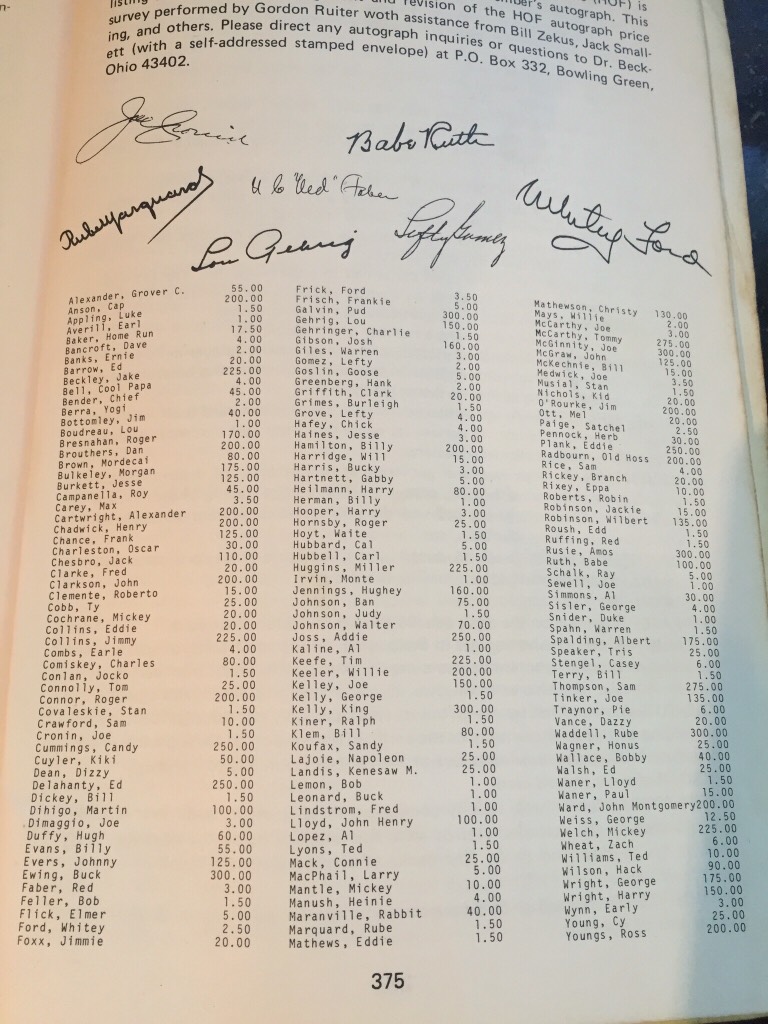 revision of the HOF autograph price
survey performed by Gordon Ruiter woth assistance from Bill Zekus, Jack Small-
ing, and others. Please direct any autograph inquiries or questions to Dr. Beck-
ett (with a self-addressed stamped envelope) at P.O. Box 332, Bowling Green,
Ohio 43402.
Joe Cronin
Babe Ruth
Rube Marquard
U C "Red" Faber
Whitey Ford
Lou Gehrig
Lefty Gomez
Alexander, Grover C. 55.00
Anson, Cap 200.00
Appling, Luke 1.50
Averill, Earl 1.00
Baker, Home Run 17.50
Bancroft, Dave 4.00
Banks, Ernie 2.00
Barrow, Ed 20.00
Beckley, Jake 225.00
Bell, Cool Papa 4.00
Bender, Chief 45.00
Berra, Yogi 2.00
Bottomley, Jim 40.00
Boudreau, Lou 1.00
Bresnahan, Roger 170.00
Brouthers, Dan 200.00
Brown, Mordecai 80.00
Bulkeley, Morgan 175.00
Burkett, Jesse 125.00
Campanella, Roy 45.00
Carey, Max 3.50
Cartwright, Alexander 200.00
Chadwick, Henry 200.00
Chance, Frank 125.00
Charleston, Oscar 30.00
Chesbro, Jack 110.00
Clarke, Fred 20.00
Clarkson, John 200.00
Clemente, Roberto 15.00
Cobb, Ty 25.00
Cochrane, Mickey 20.00
Collins, Eddie 20.00
Collins, Jimmy 225.00
Combs, Earle 4.00
Comiskey, Charles 80.00
Conlan, Jocko 1.50
Connolly, Tom 25.00
Connor, Roger 200.00
Covaleskie, Stan 1.50
Crawford, Sam 10.00
Cronin, Joe 1.50
Cummings, Candy 250.00
Cuyler, Kiki 50.00
Dean, Dizzy 5.00
Delahanty, Ed 250.00
Dickey, Bill 1.50
Dihigo, Martin 100.00
Dimaggio, Joe 3.00
Duffy, Hugh 60.00
Evans, Billy 55.00
Evers, Johnny 125.00
Ewing, Buck 300.00
Faber, Red 3.00
Feller, Bob 1.50
Flick, Elmer 5.00
Ford, Whitey 2.50
Foxx, Jimmie 20.00
Frick, Ford 3.50
Frisch, Frankie 5.00
Galvin, Pud 300.00
Gehrig, Lou 150.00
Gehringer, Charlie 1.50
Gibson, Josh 160.00
Giles, Warren 3.00
Gomez, Lefty 2.00
Goslin, Goose 5.00
Greenberg, Hank 2.00
Griffith, Clark 20.00
Grimes, Burleigh 1.50
Grove, Lefty 4.00
Hafey, Chick 4.00
Haines, Jesse 3.00
Hamilton, Billy 200.00
Harridge, Will 15.00
Harris, Bucky 3.00
Hartnett, Gabby 5.00
Heilmann, Harry 80.00
Herman, Billy 1.00
Hooper, Harry 3.00
Hornsby, Roger 25.00
Hoyt, Waite 1.50
Hubbard, Cal 5.00
Hubbell, Carl 1.50
Huggins, Miller 225.00
Irvin, Monte 1.00
Jennings, Hughey 160.00
Johnson, Ban 75.00
Johnson, Judy 1.50
Johnson, Walter 70.00
Joss, Addie 250.00
Kaline, Al 1.00
Keefe, Tim 225.00
Keeler, Willie 200.00
Kelley, Joe 150.00
Kelly, George 1.50
Kelly, King 300.00
Kiner, Ralph 1.50
Klem, Bill 80.00
Koufax, Sandy 1.50
Lajoie, Napoleon 25.00
Landis, Kenesaw M. 25.00
Lemon, Bob 1.00
Leonard, Buck 1.00
Lindstrom, Fred 1.00
Lloyd, John Henry 100.00
Lopez, Al 1.00
Lyons, Ted 1.50
Mack, Connie 25.00
MacPhail, Larry 5.00
Mantle, Mickey 10.00
Manush, Heinie 4.00
Maranville, Rabbit 40.00
Marquard, Rube 1.50
Mathews, Eddie 1.50
Mathewson, Christy 130.00
Mays, Willie 2.00
McCarthy, Joe 3.00
McCarthy, Tommy 275.00
McGinnity, Joe 300.00
McGraw, John 125.00
McKechnie, Bill 15.00
Medwick, Joe 3.50
Musial, Stan 1.50
Nichols, Kid 20.00
O'Rourke, Jim 200.00
Ott, Mel 20.00
Paige, Satchel 2.50
Pennock, Herb 30.00
Plank, Eddie 250.00
Radbourn, Old Hoss 200.00
Rice, Sam 4.00
Rickey, Branch 20.00
Rixey, Eppa 10.00
Roberts, Robin 1.50
Robinson, Jackie 15.00
Robinson, Wilbert 135.00
Roush, Edd 1.50
Ruffing, Red 1.50
Rusie, Amos 300.00
Ruth, Babe 100.00
Schalk, Ray 5.00
Sewell, Joe 1.00
Simmons, Al 30.00
Sisler, George 4.00
Snider, Duke 1.00
Spahn, Warren 1.50
Spalding, Albert 175.00
Speaker, Tris 25.00
Stengel, Casey 6.00
Terry, Bill 1.50
Thompson, Sam 275.00
Tinker, Joe 135.00
Traynor, Pie 6.00
Vance, Dazzy 20.00
Waddell, Rube 300.00
Wagner, Honus 25.00
Wallace, Bobby 40.00
Walsh, Ed 25.00
Waner, Lloyd 1.50
Waner, Paul 15.00
Ward, John Montgomery 200.00
Weiss, George 12.50
Welch, Mickey 225.00
Wheat, Zach 6.00
Williams, Ted 10.00
Wilson, Hack 90.00
Wright, George 175.00
Wright, Harry 150.00
Wynn, Early 3.00
Young, Cy 25.00
Youngs, Ross 200.00
375